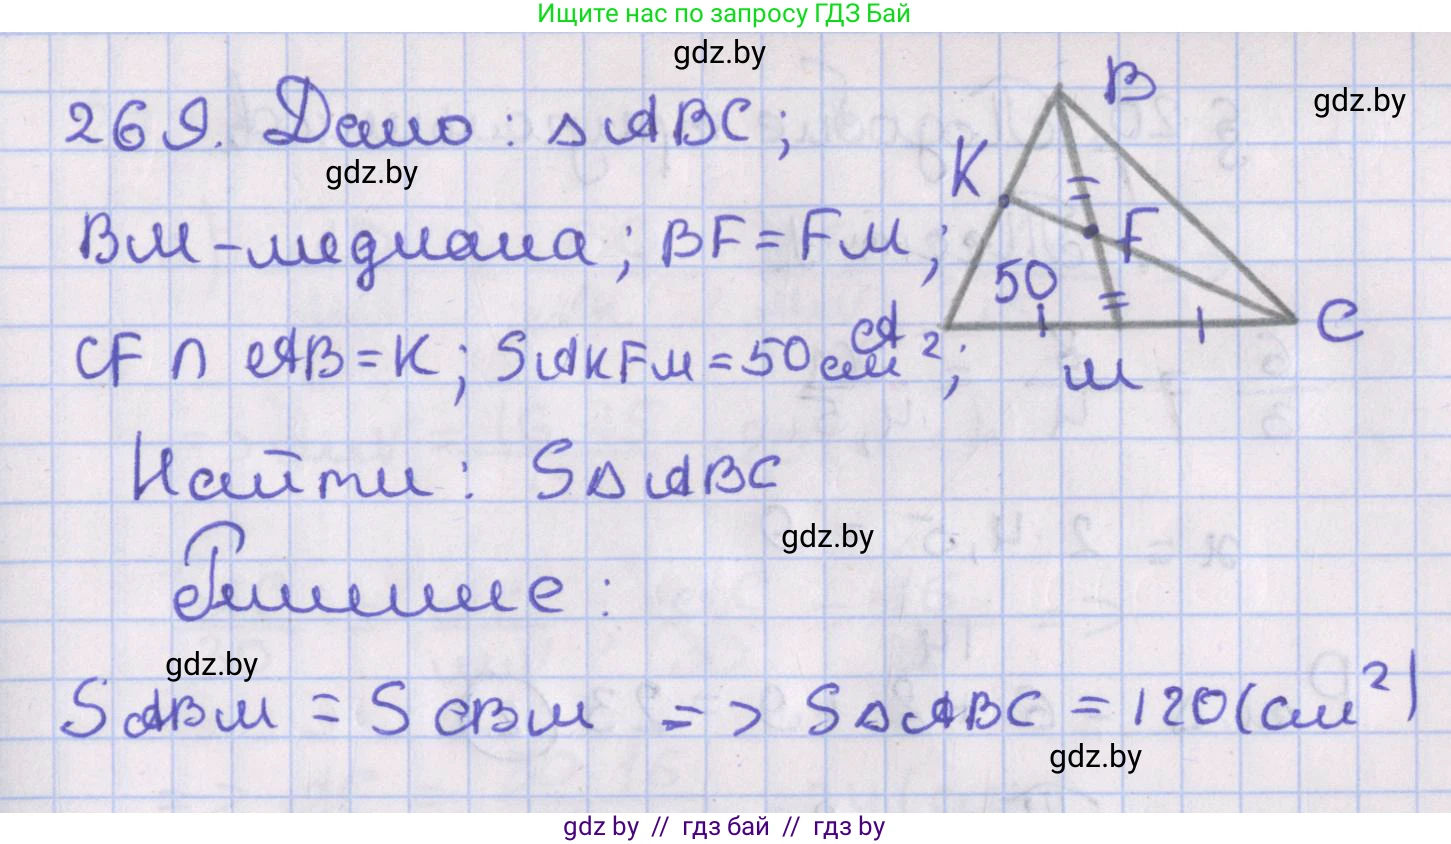 Ищите нас по запросу ГДЗ Бай
gdz.by
B
gdz.by
269. Дано: △ABC;
gdz.by
K
BM - медиана; BF = FM;
F
50
CF ∩ AB = K; SAKFM = 50 см²;
A
C
M
Найти: S△ABC
gdz.by
Решение:
gdz.by
SABM = SCBM => S△ABC = 120 (см²)
gdz.by
gdz by // гдз бай // гдз by